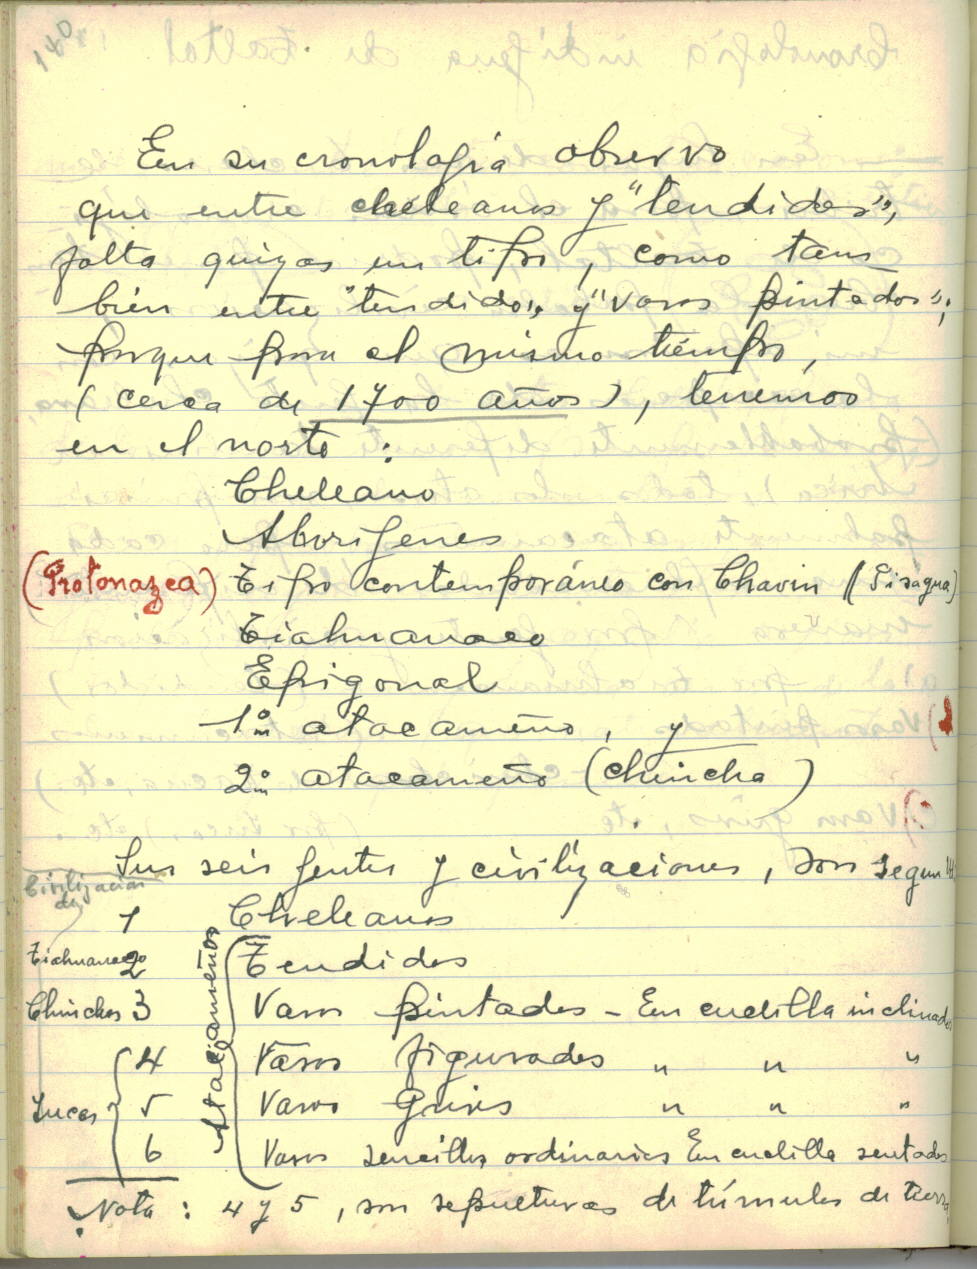 140
En su cronología observo
que entre cheleanos y "tendidos",
falta quizas un tipo, como tam
bién entre "tendidos" y "vasos pintados";
porque para el mismo tiempo,
(cerca de 1700 años), tenemos
en el norte:
Cheleano
Aborígenes
(Protonazca) Tipo contemporáneo con Chavin (Pisagua)
Tiahuanaco
Epigonal
1º atacameño, y
2º atacameño (chincha)
Sus seis gentes y civilizaciones, son segun
Civilizacion
de
1 Cheleanos
Tiahuanaco 2 Tendidos
Atacameños
Chinchas 3 Vasos pintados - En cuclilla inclinados
4 Vasos figurados " " "
Incas 5 Vasos grises " " "
6 Vasos sencillos, ordinarios En cuclilla sentados
Nota: 4 y 5, son sepulturas de túmulos de tierra,